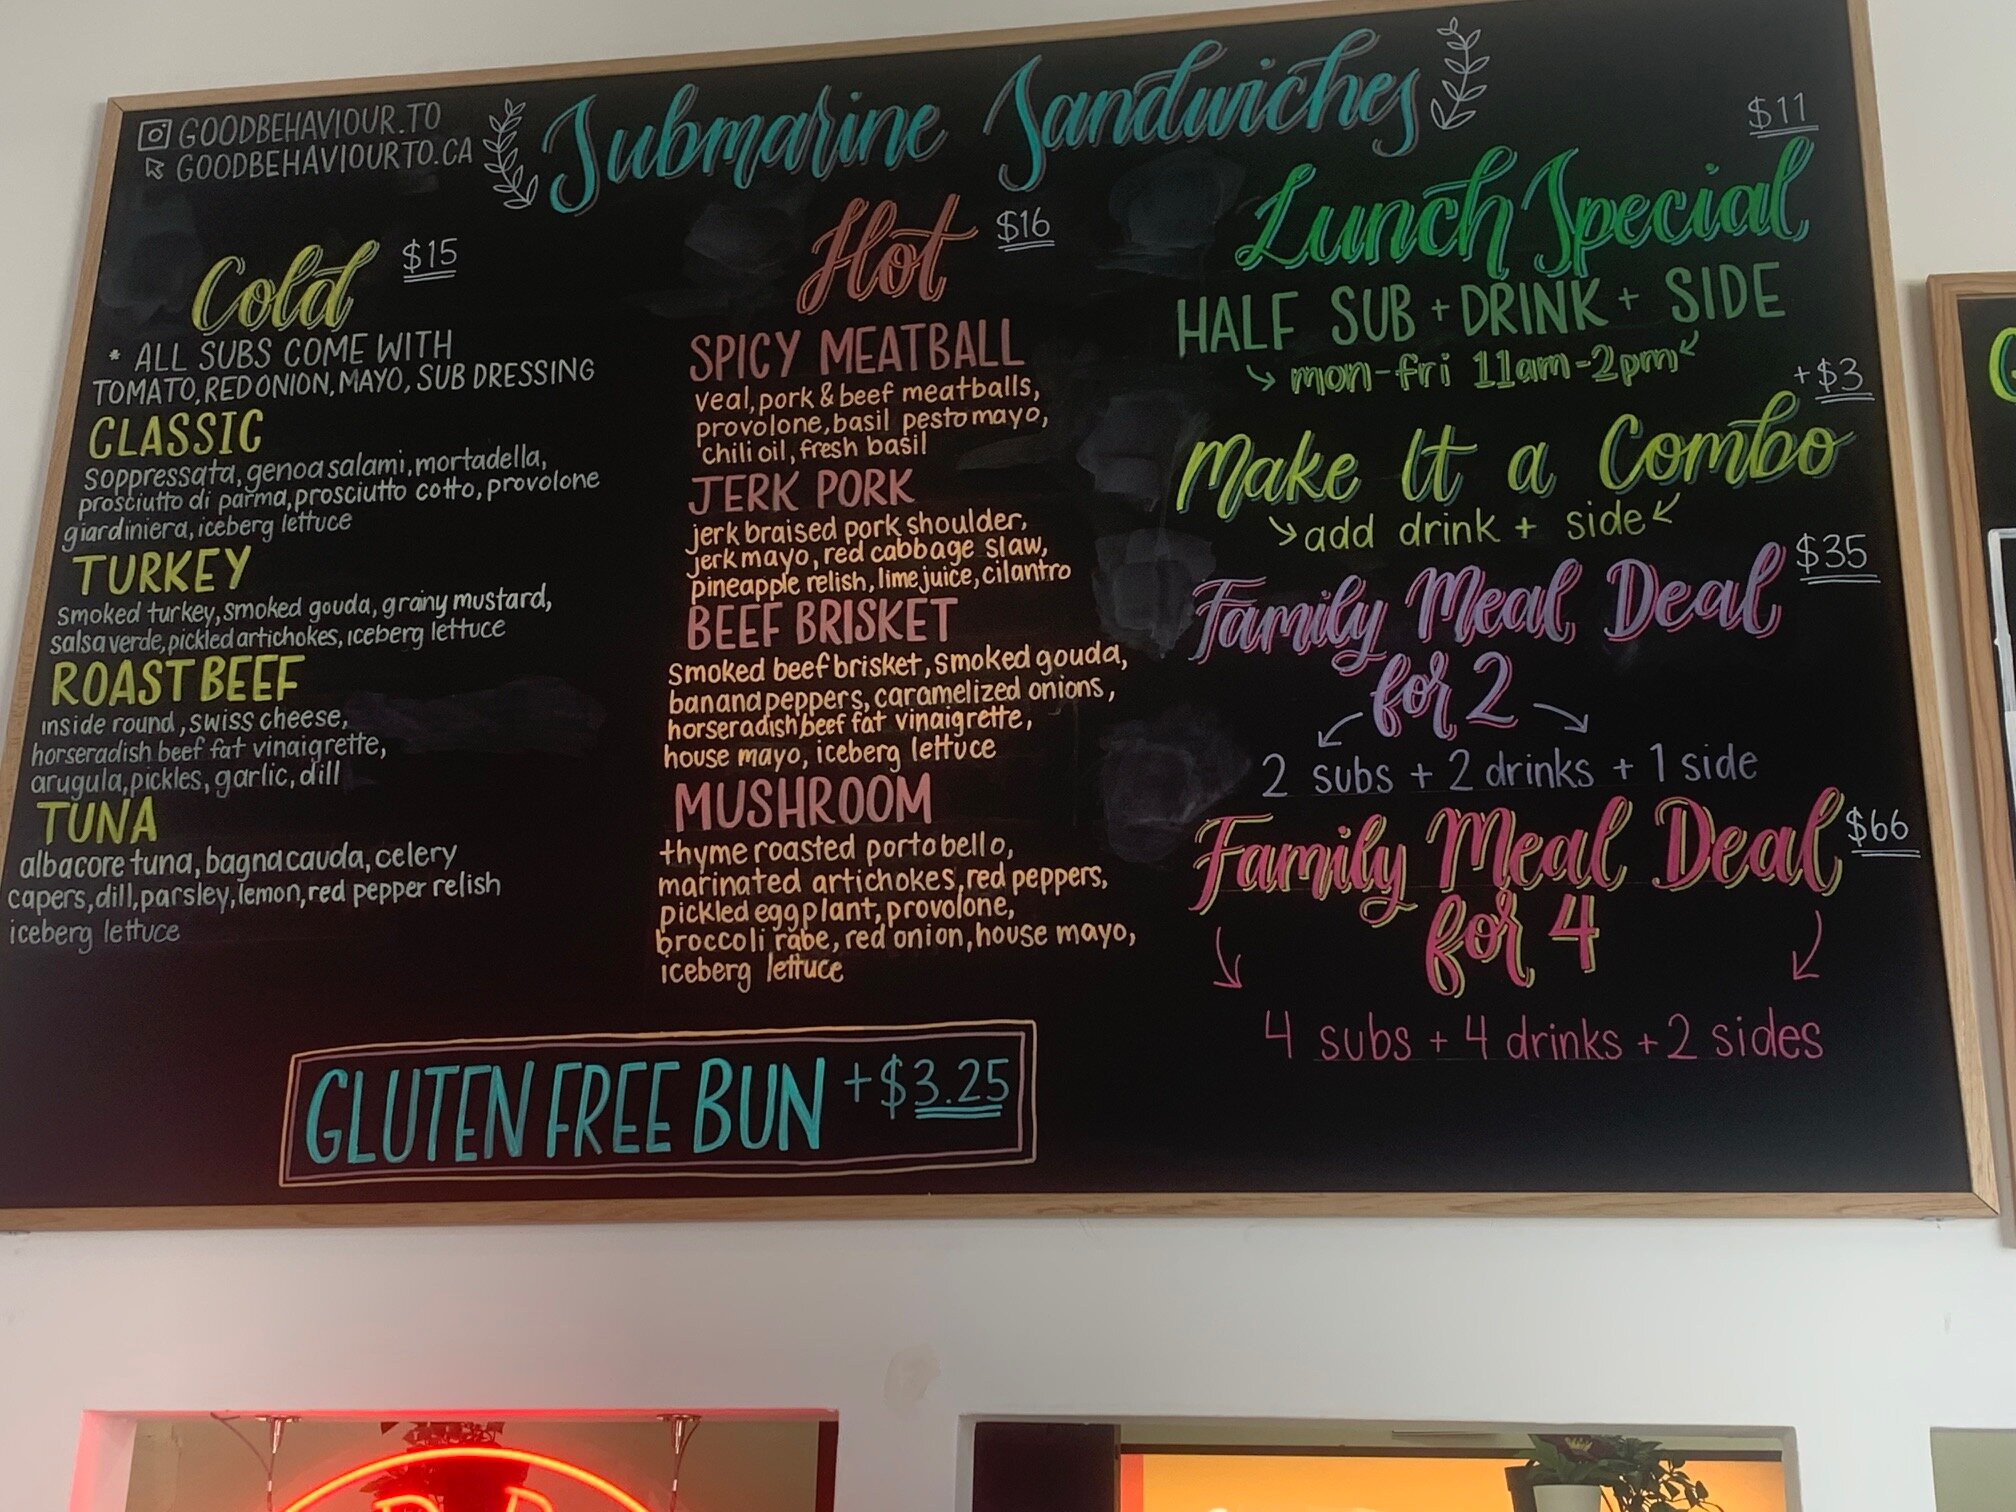 GOODBEHAVIOUR.TO
GOODBEHAVIOURTO.CA
Submarine Sandwiches
Cold $15
* ALL SUBS COME WITH
TOMATO, RED ONION, MAYO, SUB DRESSING
CLASSIC
soppressata, genoa salami, mortadella,
prosciutto di parma, prosciutto cotto, provolone
giardiniera, iceberg lettuce
TURKEY
smoked turkey, smoked gouda, grainy mustard,
salsa verde, pickled artichokes, iceberg lettuce
ROAST BEEF
inside round, swiss cheese,
horseradish beef fat vinaigrette,
arugula, pickles, garlic, dill
TUNA
albacore tuna, bagna cauda, celery
capers, dill, parsley, lemon, red pepper relish
iceberg lettuce
Hot $16
SPICY MEATBALL
veal, pork & beef meatballs,
provolone, basil pesto mayo,
chili oil, fresh basil
JERK PORK
jerk braised pork shoulder,
jerk mayo, red cabbage slaw,
pineapple relish, lime juice, cilantro
BEEF BRISKET
smoked beef brisket, smoked gouda,
banand peppers, caramelized onions,
horseradish beef fat vinaigrette,
house mayo, iceberg lettuce
MUSHROOM
thyme roasted portobello,
marinated artichokes, red peppers,
pickled eggplant, provolone,
broccoli rabe, red onion, house mayo,
iceberg lettuce
GLUTEN FREE BUN +$3.25
$11
Lunch Special
HALF SUB + DRINK + SIDE
mon-fri 11am-2pm
+$3
Make It a Combo
add drink + side
$35
Family Meal Deal
for 2
2 subs + 2 drinks + 1 side
$66
Family Meal Deal
for 4
4 subs + 4 drinks + 2 sides